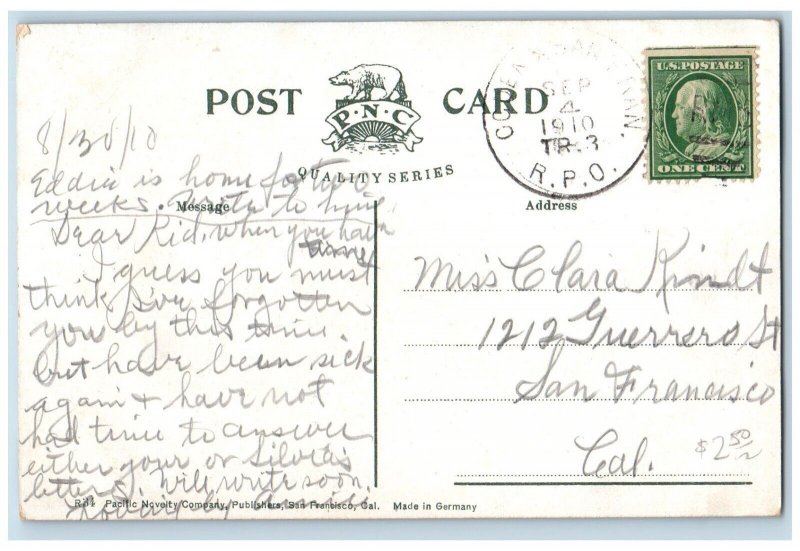 POST CARD
P·N·C
QUALITY SERIES
SEP
4
1910
TR.3
R.P.O.
U.S.POSTAGE
ONE CENT
8/30/10
Eddie is home for two
weeks. Write to him
Message
Address
Dear Kid, when you have
time
I guess you must
think I've forgotten
you by this time
but have been sick
again & have not
had time to answer
either your or Silvia's
letters. Will write soon.
Lovingly Annie
Miss Clara Kindt
1212 Guerrero St
San Francisco
Cal.
$2.50
R34 Pacific Novelty Company, Publishers, San Francisco, Cal. Made in Germany